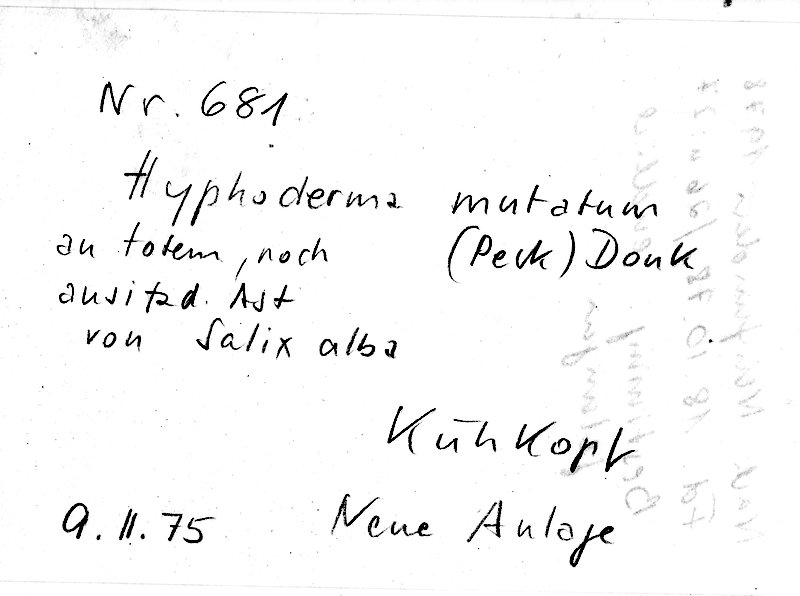 Nr. 681
Hyphoderma mutatum
(Peck) Donk
an totem, noch
ansitzd. Ast
von Salix alba
Kühkopf
9.11.75 Neue Anlage